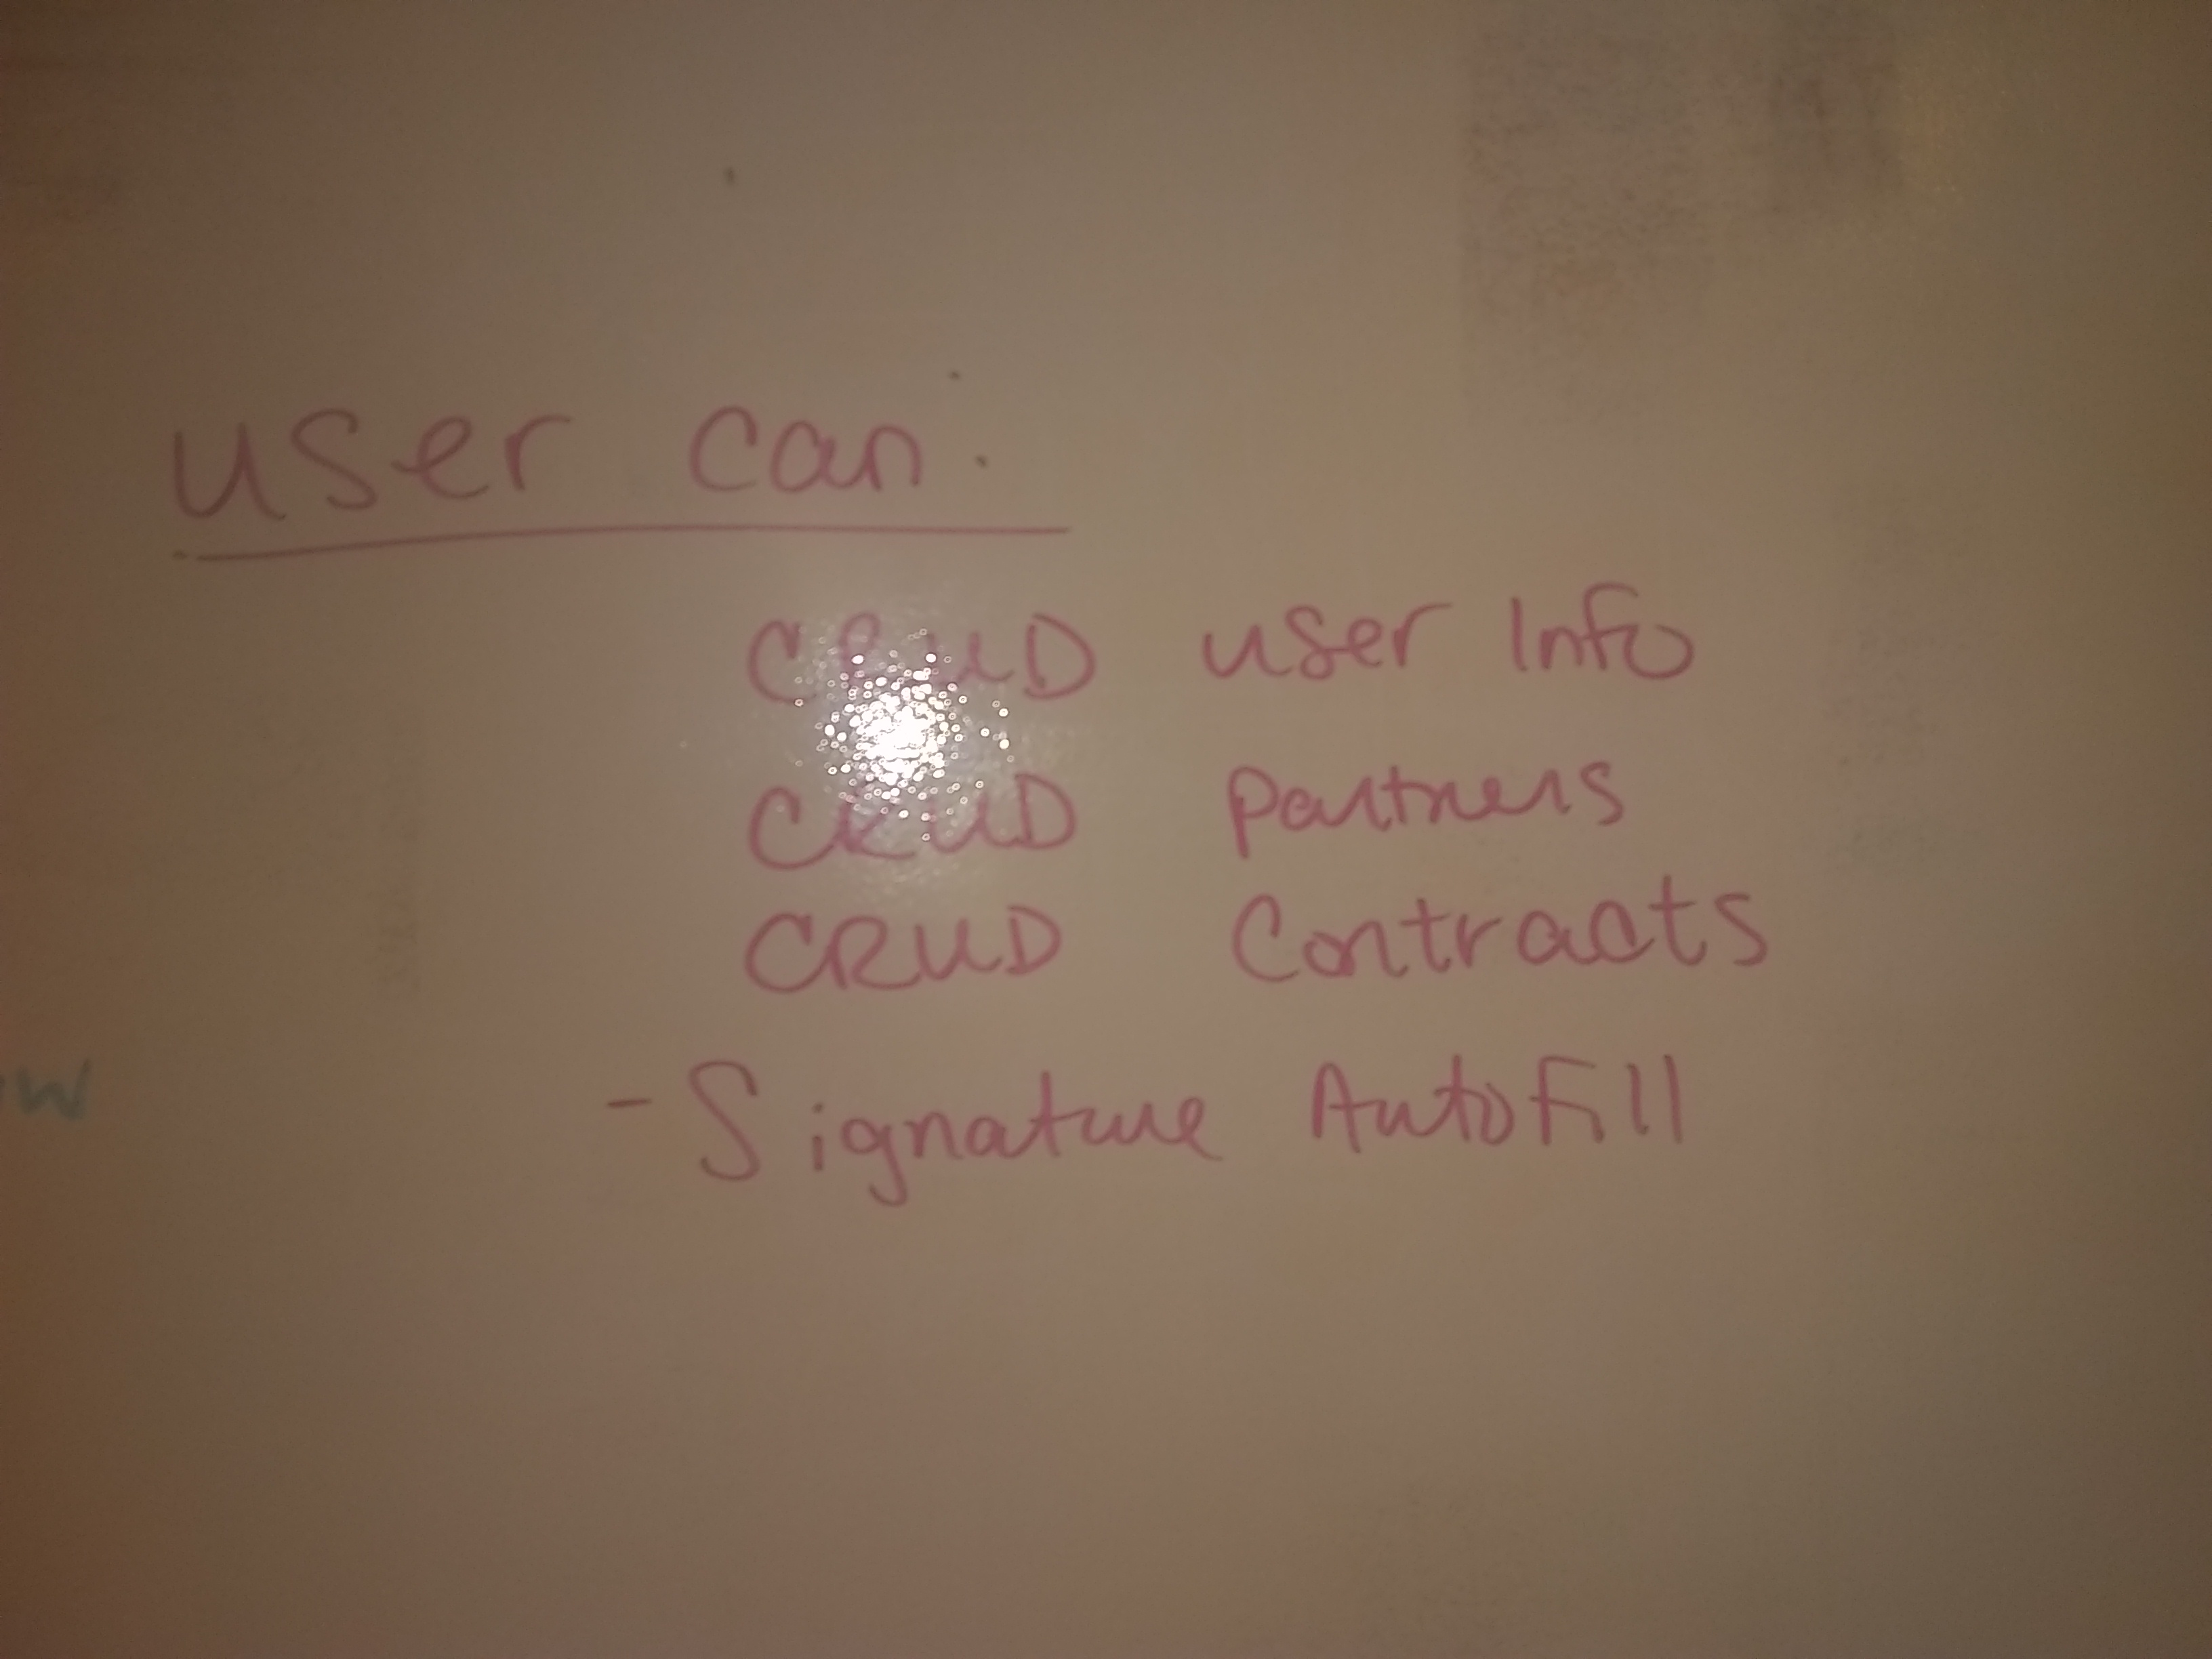 user can.
CRUD user Info
CRUD partners
CRUD Contracts
- Signature AutoFill